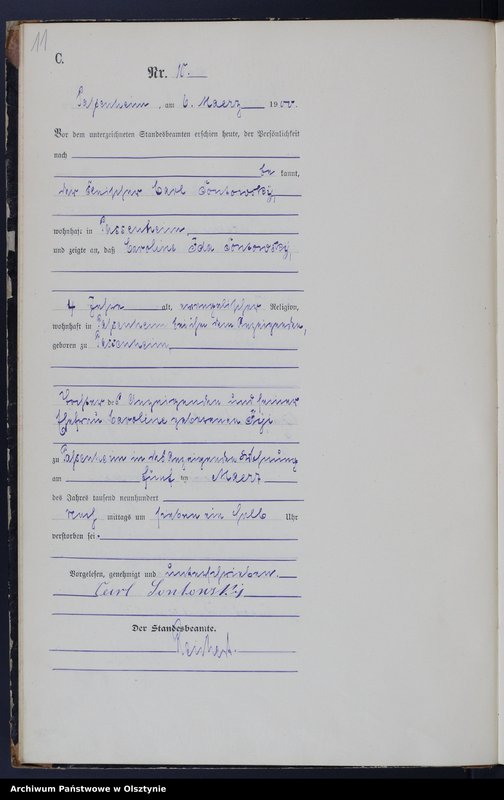 11
C.
Nr. 10.
Passenheim, am 6. Maerz 1900.
Vor dem unterzeichneten Standesbeamten erschien heute, der Persönlichkeit
nach
be kannt,
der Carl Sontowsky,
wohnhaft in Passenheim,
und zeigte an, daß Caroline Ida Sontowsky,
4 Jahre alt, evangelischer Religion,
wohnhaft in Passenheim bei ihm dem Anzeigenden,
geboren zu Passenheim,
Tochter des Anzeigenden und seiner
Ehefrau Caroline geborenen
zu Passenheim in des Anzeigenden Wohnung
am fünf ten Maerz
des Jahres tausend neunhundert
nach mittags um sieben ein halb Uhr
verstorben sei.
Vorgelesen, genehmigt und unterschrieben.
Carl Sontowsky
Der Standesbeamte.
Archiwum Państwowe w Olsztynie